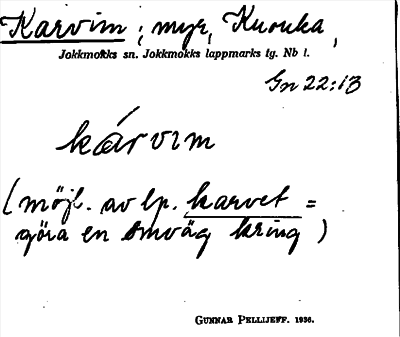 Karvim ; myr, Kuouka,
Jokkmokks sn. Jokkmokks lappmarks tg. Nb l.
Gn 22:13
kárvim
(möjl. av lp. karvet =
göra en omväg kring)
GUNNAR PELLIJEFF. 1936.